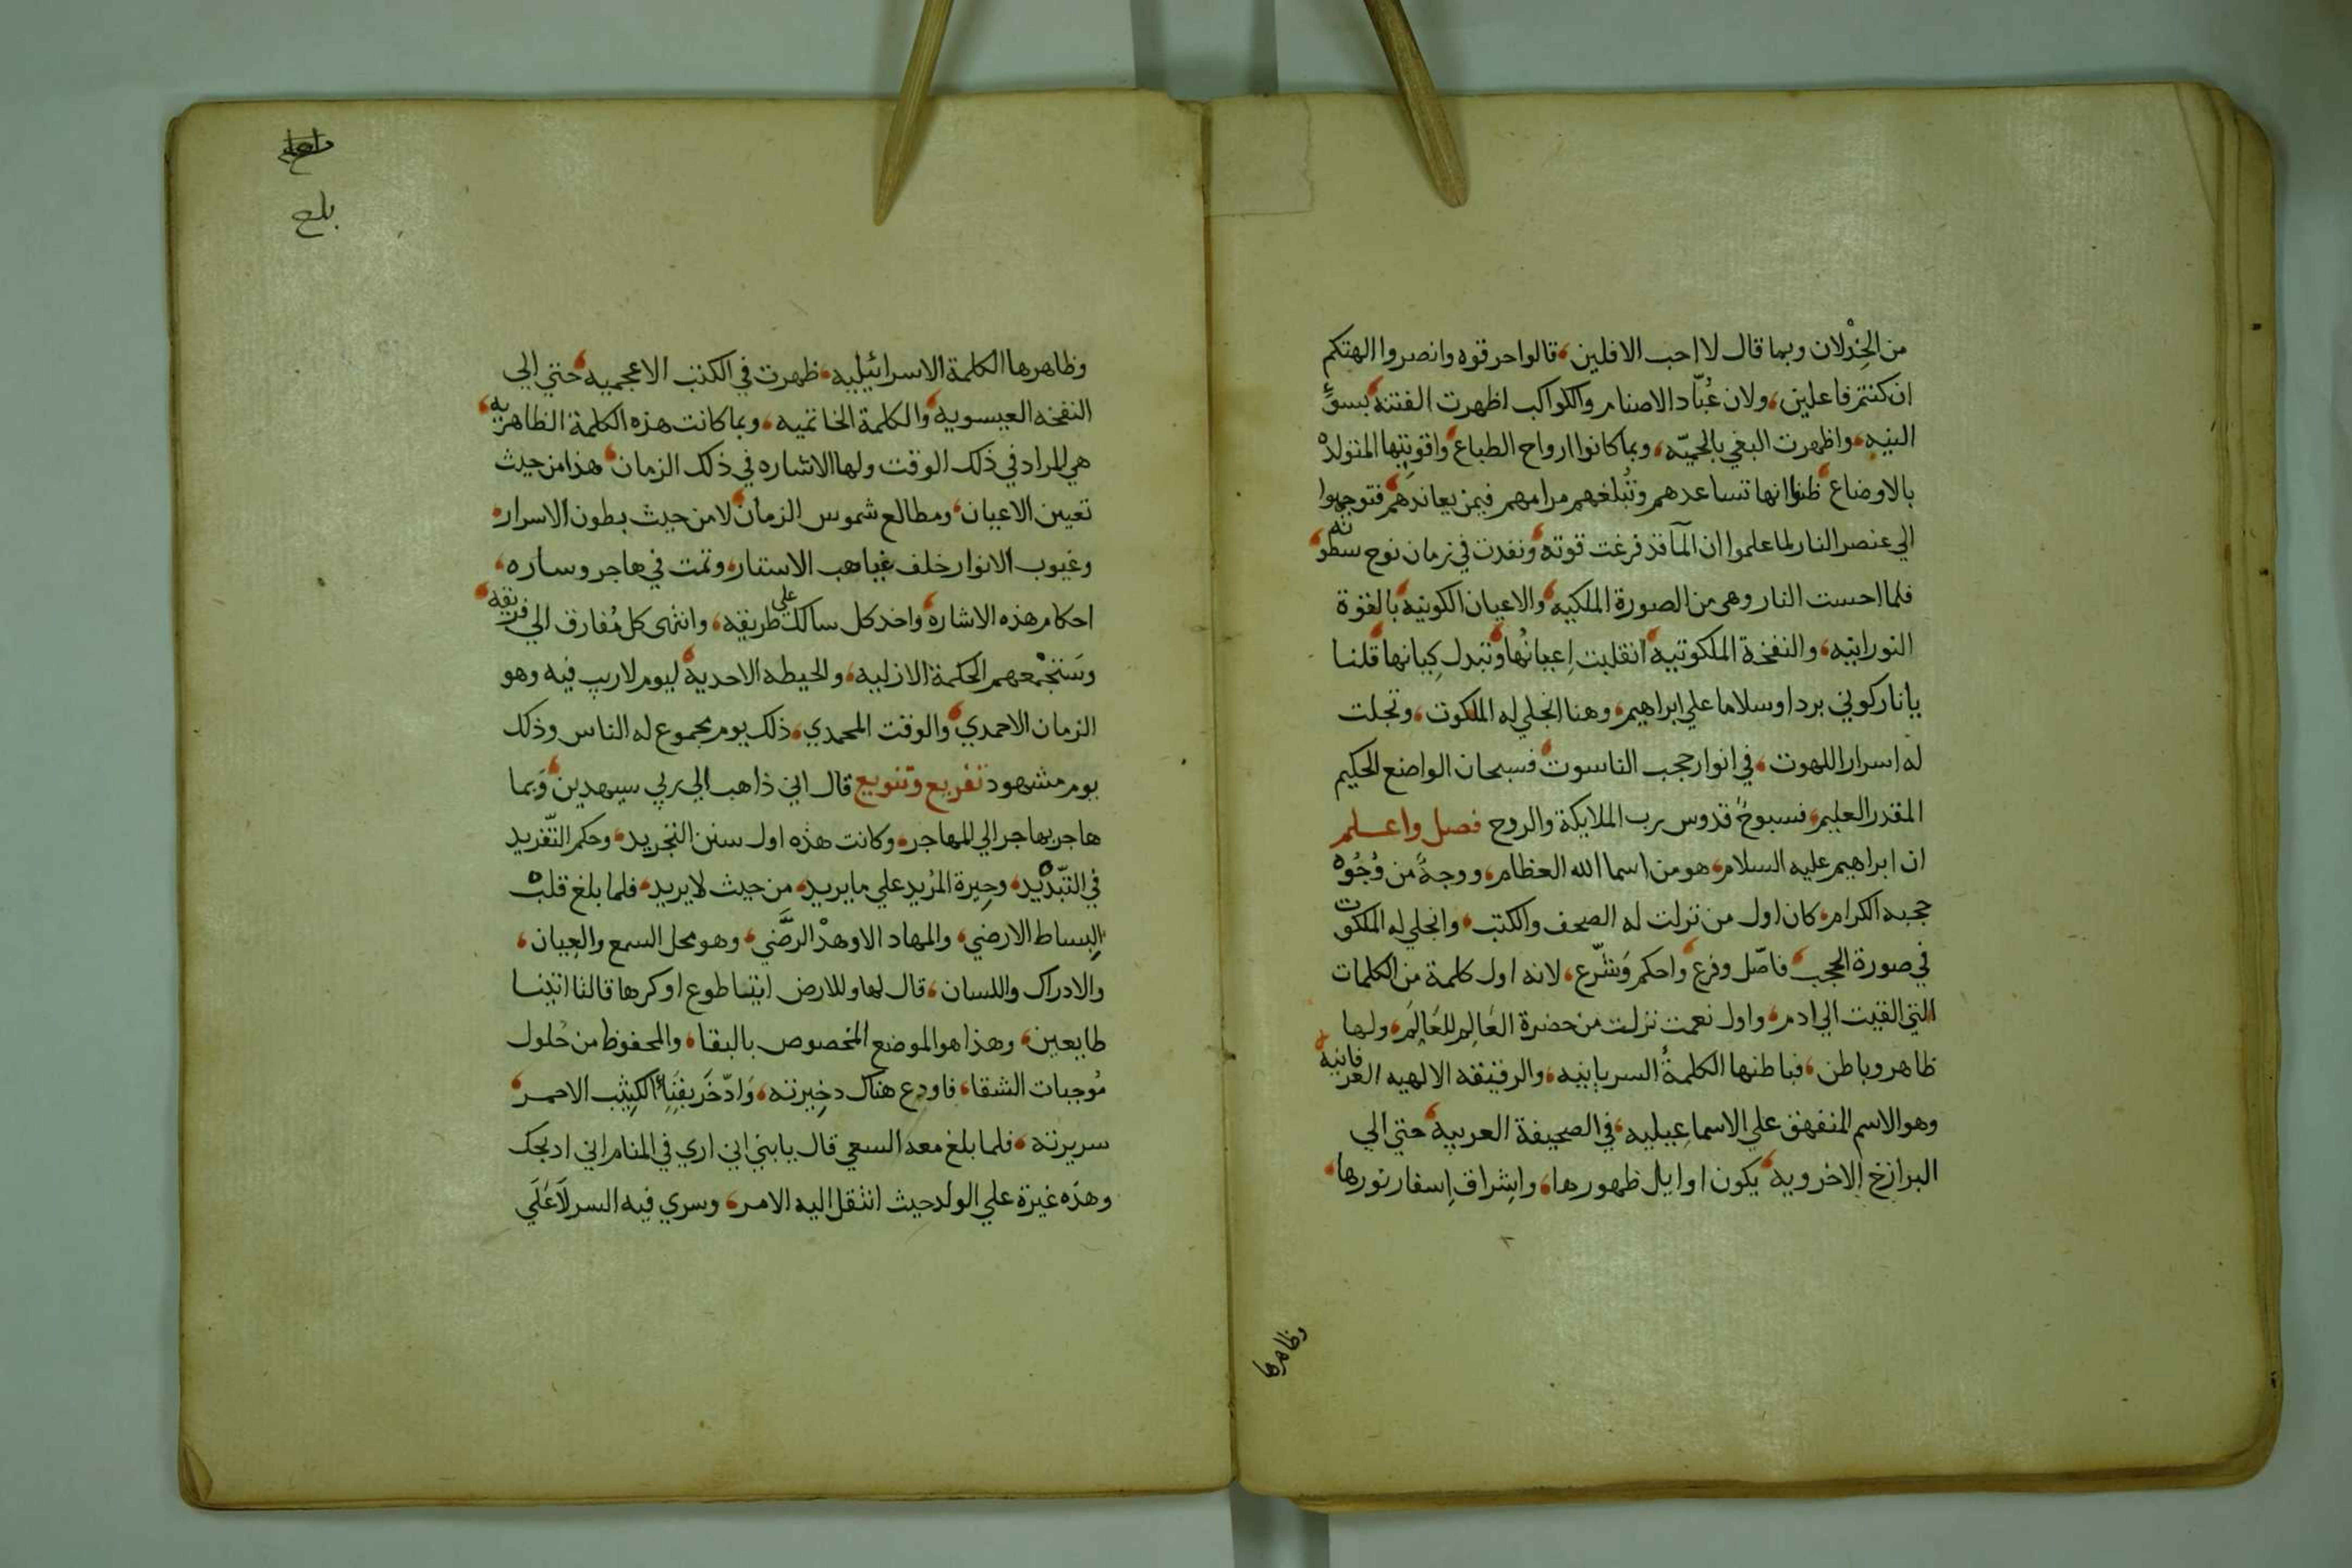 من الخِذْلان وبما قال لا احب الافلين، قالوا حرقوه وانصروا الهتكم
ان كنتم فاعلين، ولان عُبّاد الاصنام والكواكب اظهرت الفتنه بسوءِ
النيه، واظهرت البغي بالحميّه، وبما كانوا ارواح الطباع واقويتها المتولده
بالاوضاع ظنوا انها تساعدهم وتُبلغهم مرامهم فيمن يعاندهم، فتوجهوا
الي عنصر النار لما علموا ان المآ قد فرغت قوته، ونفدت في زمان نوح سطوته
فلما احست النار وهي من الصورة الملكيه، والاعيان الكونيه، بالقوة
النورانيه، والنفخة الملكوتيه، انقلبت اعيانُها، وتبدل كِيانها، قلنا
يا نار كوني بردا وسلاما علي ابراهيم، وهنا انجلي له الملكوت، وتجلت
له اسرار اللهوت، في انوار حجب الناسوت، فسبحان الواضع الحكيم
المقدر العليم، فسبوحٌ قدوس رب الملايكة والروح فصل واعلم
ان ابراهيم عليه السلام، هو من اسما الله العظام، ووجهٌ من وُجُوه
حجبه الكرام، كان اول من نزلت له الصحف والكتب، وانجلي له الملكوت
في صورة الحجب، فاصّل وفرع، واحكم وَشرّع، لانه اول كلمة من الكلمات
التي القيت الي ادم، واول نعمت نزلت من حضرة العَالِم للعَالَم، ولها
ظاهر وباطن، فباطنها الكلمةُ السريانيه، والرقيقه الالهيه العرفانيه
وهو الاسم المتفهق علي الاسماعيليه، في الصحيفة العربيه، حتي الي
البرازخ الاخرويه، يكون اوايل ظهورها، واشراق اسفار نورها،
وظاهرها
بلغ
وظاهرها الكلمة الاسرائيليه، ظهرت في الكتب الاعجميه، حتي الي
النفخه العيسويه، والكلمة الخاتميه، وبما كانت هذه الكلمة الظاهريه،
هي المراد في ذلك الوقت ولها الاشاره في ذلك الزمان، هذا من حيث
تعيين الاعيان، ومطالع شموس الزمان، لا من حيث بطون الاسرار،
وغيوب الانوار خلف غياهب الاستار، وتمت في هاجر وساره،
احكام هذه الاشاره، واخد كل سالك علي طريقه، وانتهي كل مُفارق الي فريقه،
وسَتجْمعهم الحكمة الازليه، والحيطه الاحديه، ليوم لا ريب فيه وهو
الزمان الاحمدي، والوقت المحمدي، ذلك يوم مجموع له الناس وذلك
يوم مشهود تفريع وتنويع قال اني ذاهب الي ربي سيهدين، وَبما
هاجر بهاجر الي المهاجر، وكانت هذه اول سنن التجريد، وحكم التّفريد
في التّبْديْد، وحِيرة المُريد علي ما يريد، من حيث لا يريد، فلما بلغ قلب
البساط الارضي، والمهاد الاوهدْ الرضَّي، وهو محل السمع والعِيان،
والادراك واللسان، قال لها وللارض ايتيا طوعا وكرها قالتا اتينا
طايعين، وهذا هو الموضع المخصوص بالبقا، والمحفوظ من حُلول
مُوجبات الشقا، فاودع هناك دخيرته، وَادّخَر بفَنِاءُ الكثيب الاحمر،
سريرته، فلما بلغ معه السعي قال يا بني اني اري في المنام اني ادبحك
وهذه غيرة علي الولد حيث انتقل اليه الامر، وسري فيه السر لا عَلَي